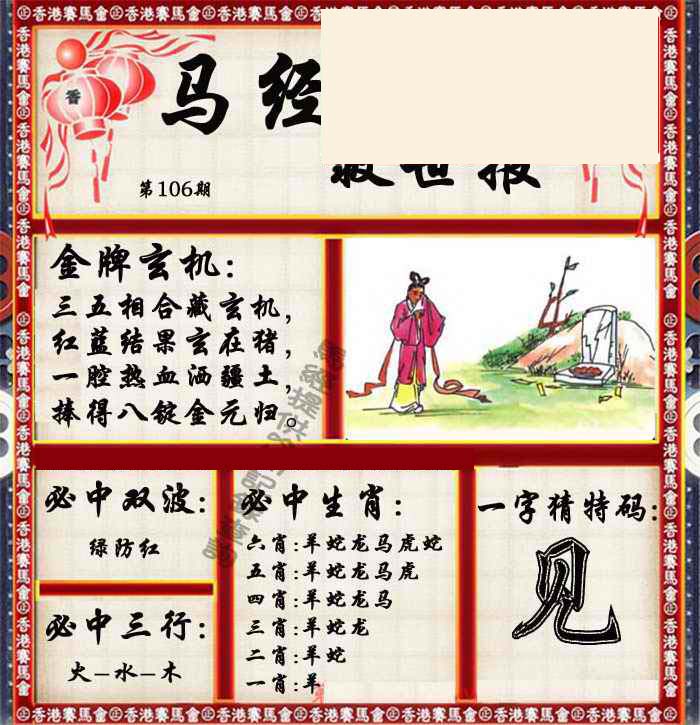 马经
救世报
第106期
金牌玄机:
三五相合藏玄机,
红蓝结果玄在猪,
一腔热血洒疆土,
捧得八锭金元归。
必中双波:
绿防红
必中三行:
火–水–木
必中生肖:
六肖:羊蛇龙马虎蛇
五肖:羊蛇龙马虎
四肖:羊蛇龙马
三肖:羊蛇龙
二肖:羊蛇
一肖:羊
一字猜特码:
见
香港賽馬會